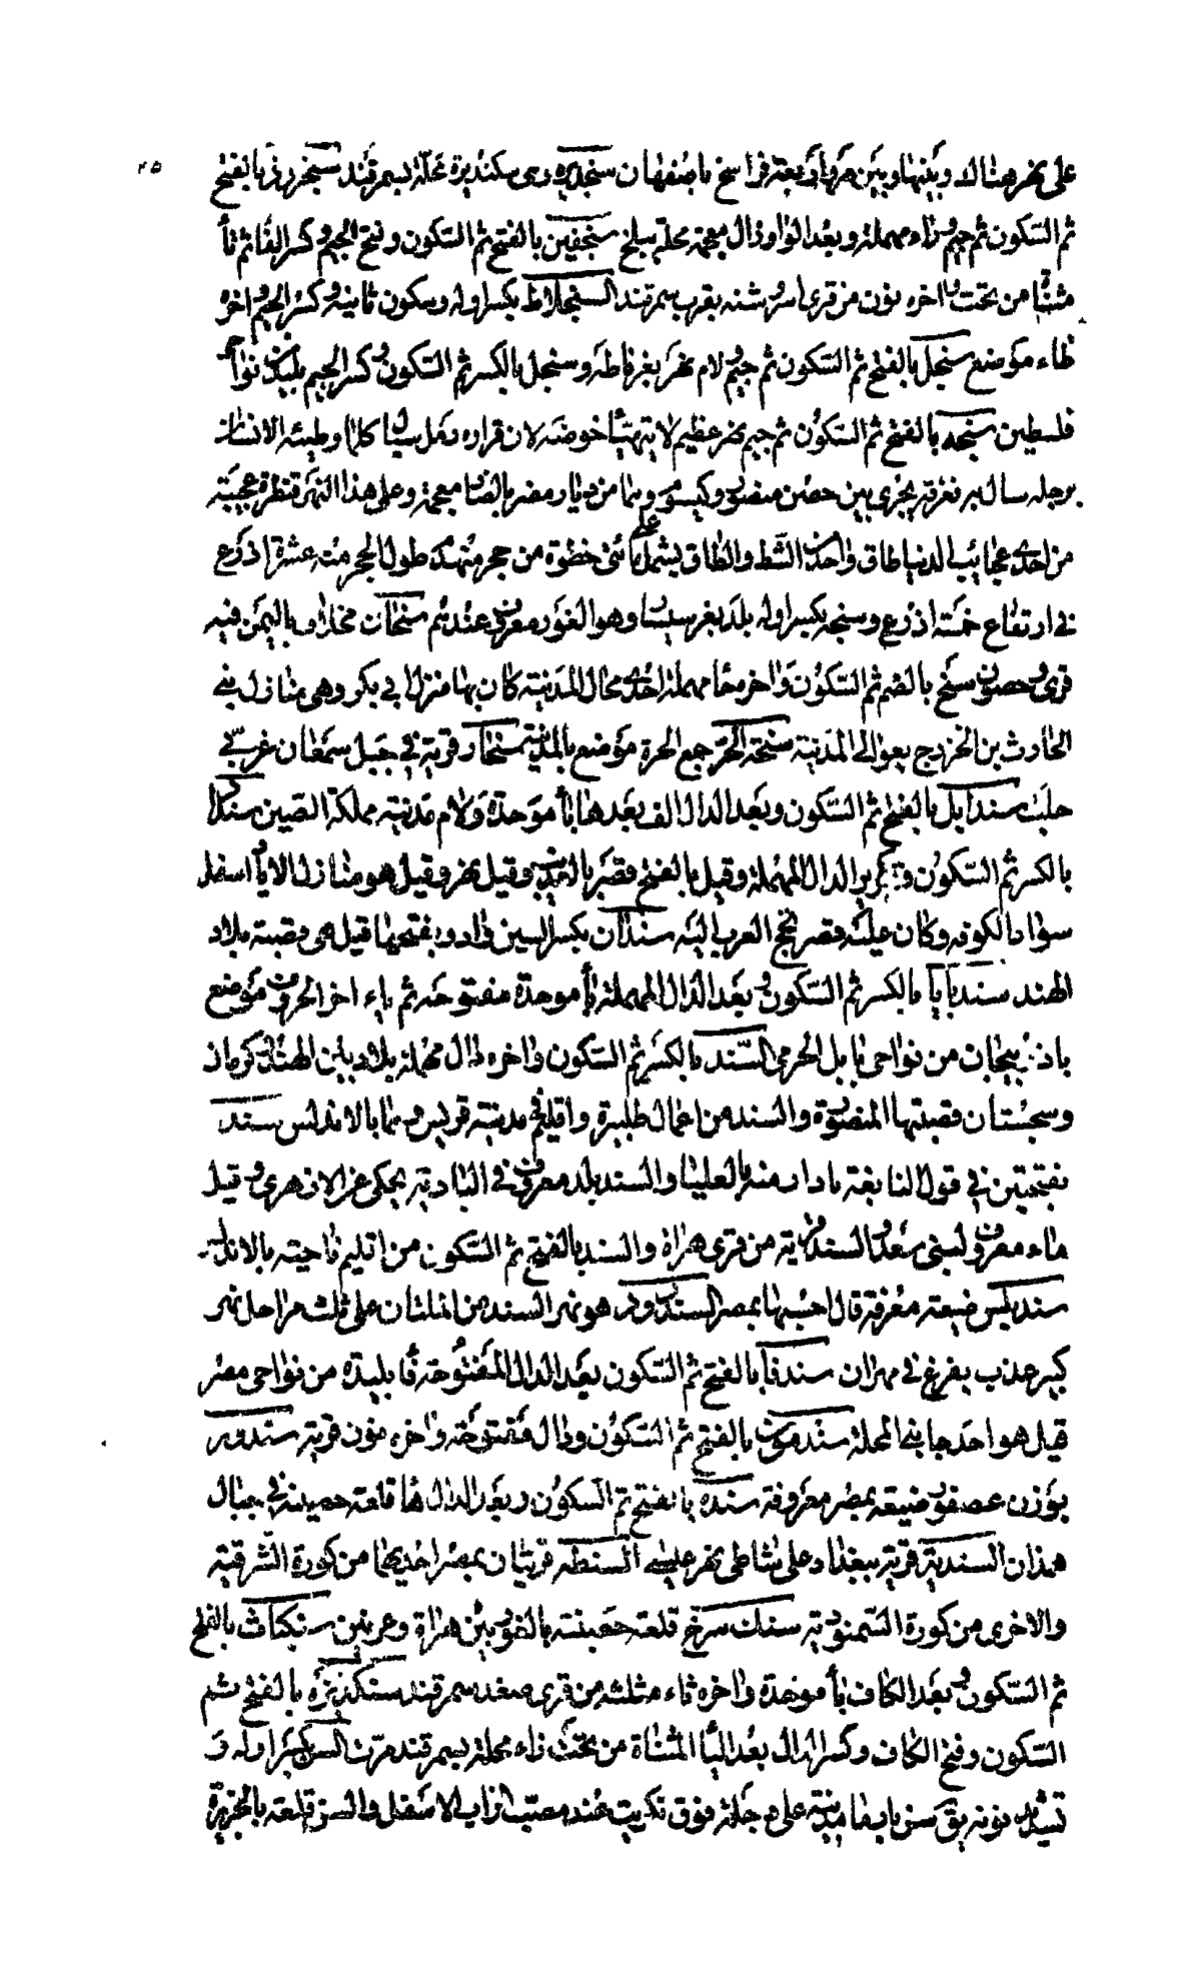 ٢٥
على نهر هناك وبينها وبين هراة اربعة فراسخ باصفهان سنجديزه وهى سكنديزة محلة بسمرقند سنجروذ بالفتح
ثم السكون ثم جيم وراء مهملة وبعد الواو ذال معجمة محلة ببلخ سنجفين بالفتح ثم السكون وفتح الجيم وكسر الفا ثم يا
مثناة من تحت واخره نون من قرى اسروشنه بقرب سمرقند السنجلاظ بكسر اوله وسكون ثانيه وكسر الجيم واخره
ظاء موضع سنجل بالفتح ثم السكون ثم جيم ولام نهر بغرناطه وسنجل بالكسر ثم السكون وكسر الجيم بليدة نواحى
فلسطين سنجه بالفتح ثم السكون ثم جيم نهر عظيم لا يتهيأ خوضه لان قراره رمل سيال كلما وطيئه الانسان
برجله سال به فغرقه يجرى بين حصن منصور وكيسوم وهما من ديار مضر بالضاد معجمة وعلى هذا النهر قنطرة عجيبة
من احدى عجايب الدنيا طاق واحد من الشط والطاق يشتمل على مائتى خطوة من حجر مهندم طول الحجر منه عشرة اذرع
فى ارتفاع خمسة اذرع وسنجه بكسر اوله بلد بغرسستان وهو الغور معروف عندهم سنحان مخلاف باليمن فيه
قرى وحصون سنح بالضم ثم السكون واخره حا مهملة احدى محال المدينة كان بها منزل ابى بكر وهى منازل بنى
الحارث بن الخزرج بعوالى المدينة سنحة الحر جمع الحرة موضع بالمدينة سنخار قرية فى جبل سمعان غربى
حلب سندابل بالفتح ثم السكون وبعد الدال الف بعدها باء موحدة ولام مدينة مملكة الصين سنداد
بالكسر ثم السكون وتكرير الدال المهملة وقيل بالفتح قصر بالعذيب وقيل نهر وقيل هو منازل لاياد اسفل
سواد الكوفه وكان عليه قصر تحج العرب اليه سندان بكسر السين فى اوله وبفتحها قيل هى قصبة بلاد
الهند سندبايا بالكسر ثم السكون وبعد الدال المهملة باء موحدة مفتوحة ثم ياء اخر الحروف موضع
باذربيجان من نواحى بابل الخرمى السند بالكسر ثم السكون واخره دال مهملة بلاد بين الهند وكرمان
وسجستان قصبتها المنصورة والسند من اعمال طلبيرة واقليم فى مدينة قريس وهما بالاندلس سند
بفتحتين فى قول النابغة يا دار مية بالعلياء والسند بلد معروف فى البادية يحكى عن الازهرى وقيل
ماء معروف لبنى سعد والسند قرية من قرى هراة والسند بالفتح ثم السكون من اقليم ناحيته بالاندلس
سندبيس ضيعة معرفة قال احسبها بمصر السندرود هو نهر السند من الملتان على ثلث مراحل نهر
كبير عذب يفرغ فى مهران سندفا بالفتح ثم السكون وبعد الدال المفتوحة فا بليدة من نواحى مصر
قيل هو احد جانبى المحلة سندمون بالفتح ثم السكون ودال مفتوحة واخره نون قرية سندور
بوزن عصفور ضيعة بمصر معروفة سنده بالفتح ثم السكون وبعد الدال ها قلعة حصينة فى جبال
همذان السندية قرية ببغداد على شاطى نهر عيسى السنطه قريتان بمصر احديهما من كورة الشرقية
والاخرى من كورة السمنودية سنك سرخ قلعة حصينة بالغور بين هراة وغزنين سنكباث بالفتح
ثم السكون وبعد الكاف باء موحدة واخره ثاء مثلثة من قرى صغد سمرقند سنكديزه بالفتح ثم
السكون وفتح الكاف وكسر الدال وبعد اليا المثناة من تحت زاء محلة بسمرقند مرت السن بكسر اوله و
تشديد نونه يقال سن بارما مدينة على دجلة فوق تكريت عند مصب الزاب الاسفل والسن قلعة بالجزيرة